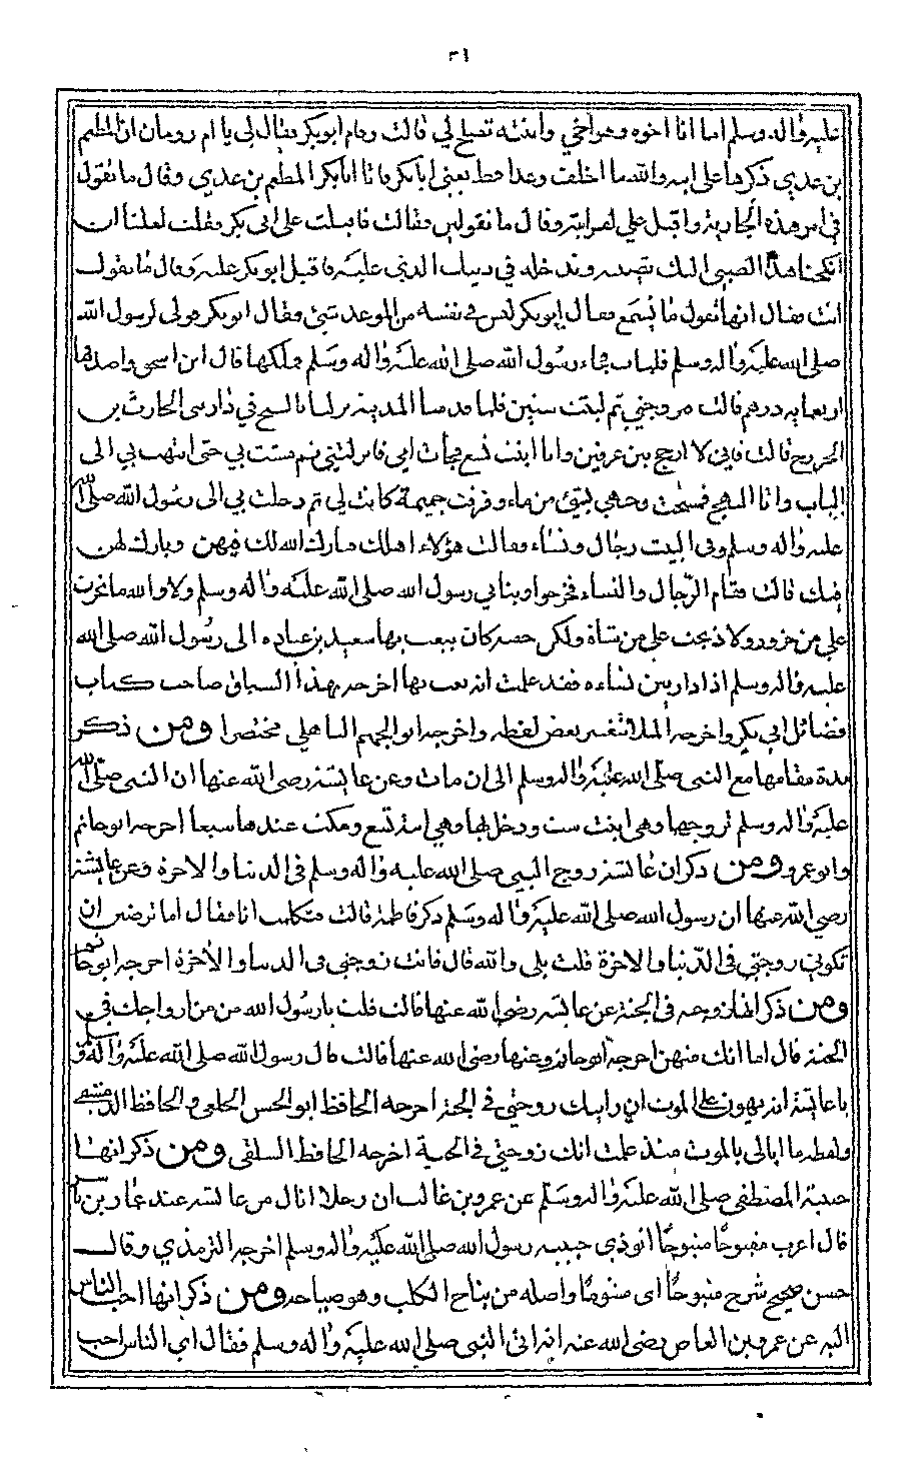 ٣١
عليه وآله وسلم اما انا اخوه وهو اخي وابنته تصلح لي قالت وقام ابوبكر فقال لي يا ام رومان ان المطعم
بن عدي ذكرها على ابنه والله ما اخلف وعدا قط يعني ابابكر فاتا ابابكر المطعم بن عدي وقال ما تقول
في امر هذه الجارية واقبل على لمراته وقال ما تقولين فقالت فاقبلت على ابي بكر فقلت لعلنا ان
انكحنا هذا الصبي اليك تصبه وتدخله في دينك الذي عليه فاقبل ابوبكر عليه وقال ما تقول
انت فقال انها تقول ما تسمع فقال ابوبكر ليس في نفسه من الموعد شئ فقال ابوبكر قولي لرسول الله
صلى الله عليه وآله وسلم فليات فجاء رسول الله صلى الله عليه وآله وسلم فملكها قال ابن اسحق واصدقها
اربعمايه درهم قالت تزوجني ثم لبثت سنين فلما قدمنا المدينة نزلنا بالسنح في دار بني الحارث بن
الخزرج قالت فاني لا ارجح بين عرفين وانا ابنت تسع فجأت امي فانزلتني ثم مشت بي حتى انتهت بي الى
الباب وانا انهج فمسحت وجهي بشئ من ماء وفرقت جميمة كانت لي ثم دخلت بي الى رسول الله صلى الله
عليه وآله وسلم وفي البيت رجال ونساء فقالت هؤلاء اهلك فبارك الله لك فيهن وبارك لهن
فيك قالت فقام الرجال والنساء فخرجوا وبنا بي رسول الله صلى الله عليه وآله وسلم ولا والله ما نحرت
علي من جزور ولا ذبحت علي من شاة ولكن جفنه كان يبعث بها سعيد بن عباده الى رسول الله صلى الله
عليه وآله وسلم اذا دار بين نساءه فقد علمت انه بعث بها اخرجه بهذا السياق صاحب كتاب
فضائل ابي بكر واخرجه الملا بتغيير بعض لفظه واخرجه ابو الجهم الباهلي مختصرا ومن ذكر
مدة مقامها مع النبي صلى الله عليه وآله وسلم الى ان مات وعن عايشة رضي الله عنها ان النبي صلى الله
عليه وآله وسلم تزوجها وهي ابنت ست ودخل بها وهي ابنة تسع ومكث عندها تسعا اخرجه ابو حاتم
وابو عمرو ومن ذكر ان عايشة زوج النبي صلى الله عليه وآله وسلم في الدنيا والاخرة وعن عايشة
رضي الله عنها ان رسول الله صلى الله عليه وآله وسلم ذكر فاطمة قالت فتكلمت انا فقال اما ترضين ان
تكوني زوجتي في الدنيا والاخرة قلت بلى والله قال فانت زوجتي في الدنيا والاخرة اخرجه ابو حاتم
ومن ذكر انها زوجه في الجنة عن عايشه رضي الله عنها قالت قلت يا رسول الله من من ازواجك في
الجنة قال اما انك منهن اخرجه ابو حاتم وعنها رضي الله عنها قالت قال رسول الله صلى الله عليه وآله وسلم
يا عايشة انه يهون علي الموت اني رايتك زوجتي في الجنة اخرجه الحافظ ابو الحسن الخلعي والحافظ الدمشقي
ولفظه ما ابالي بالموت منذ علمت انك زوجتي في الجنة اخرجه الحافظ السلفي ومن ذكر انها
حبيبة المصطفى صلى الله عليه وآله وسلم عن عمرو بن غالب ان رجلا نال من عايشه عند عمار بن ياسر
قال اعزب مقبوحا منبوحا اتوذي حبيبه رسول الله صلى الله عليه وآله وسلم اخرجه الترمذي وقال
حسن صحيح شرح منبوحا اى مشتوما واصله من نباح الكلب وهو صياحه ومن ذكر انها احب الناس
اليه عن عمرو بن العاص رضي الله عنه انه اتى النبي صلى الله عليه وآله وسلم فقال اي الناس احب